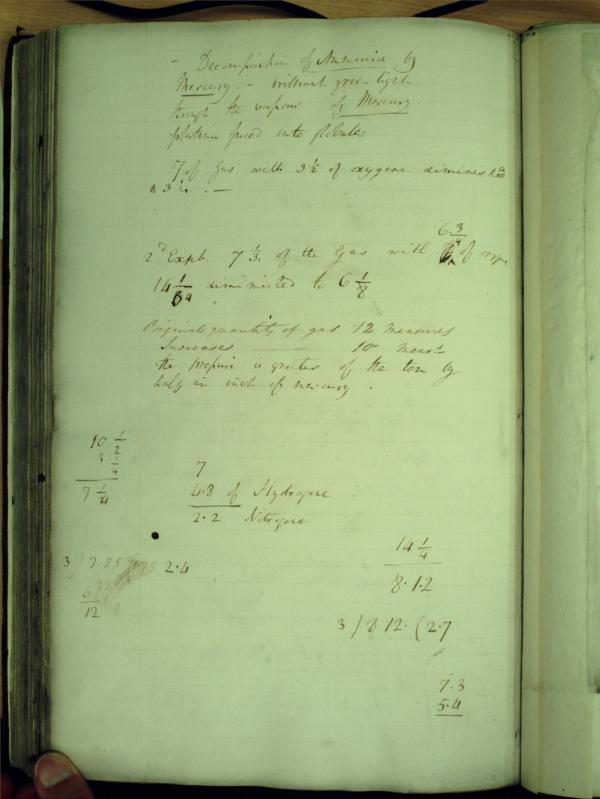 - Decomposition of Ammonia by
Mercury. - brilliant green light
through the vapour of Mercury.
platina fused into globules
7 of Gas with 3 1/2 of oxygene diminished
to 3 1/4. -
6 3/4
2d Expt. 7 1/3 of the Gas with of oxygene
14 1/4 diminished to 6 1/8
Original quantity of gas 12 measures
Increases 10 meas
the is greater of the by
half an inch of mercury.
10 1/2
3 1/4
7 1/4
7
4.8 of Hydrogene
2.2 Nitrogene
14 1/4
8.1.2
3 ) 7.25 ( 2.4
6
12
3 ) 8 12. ( 2.7
7.3
5.4